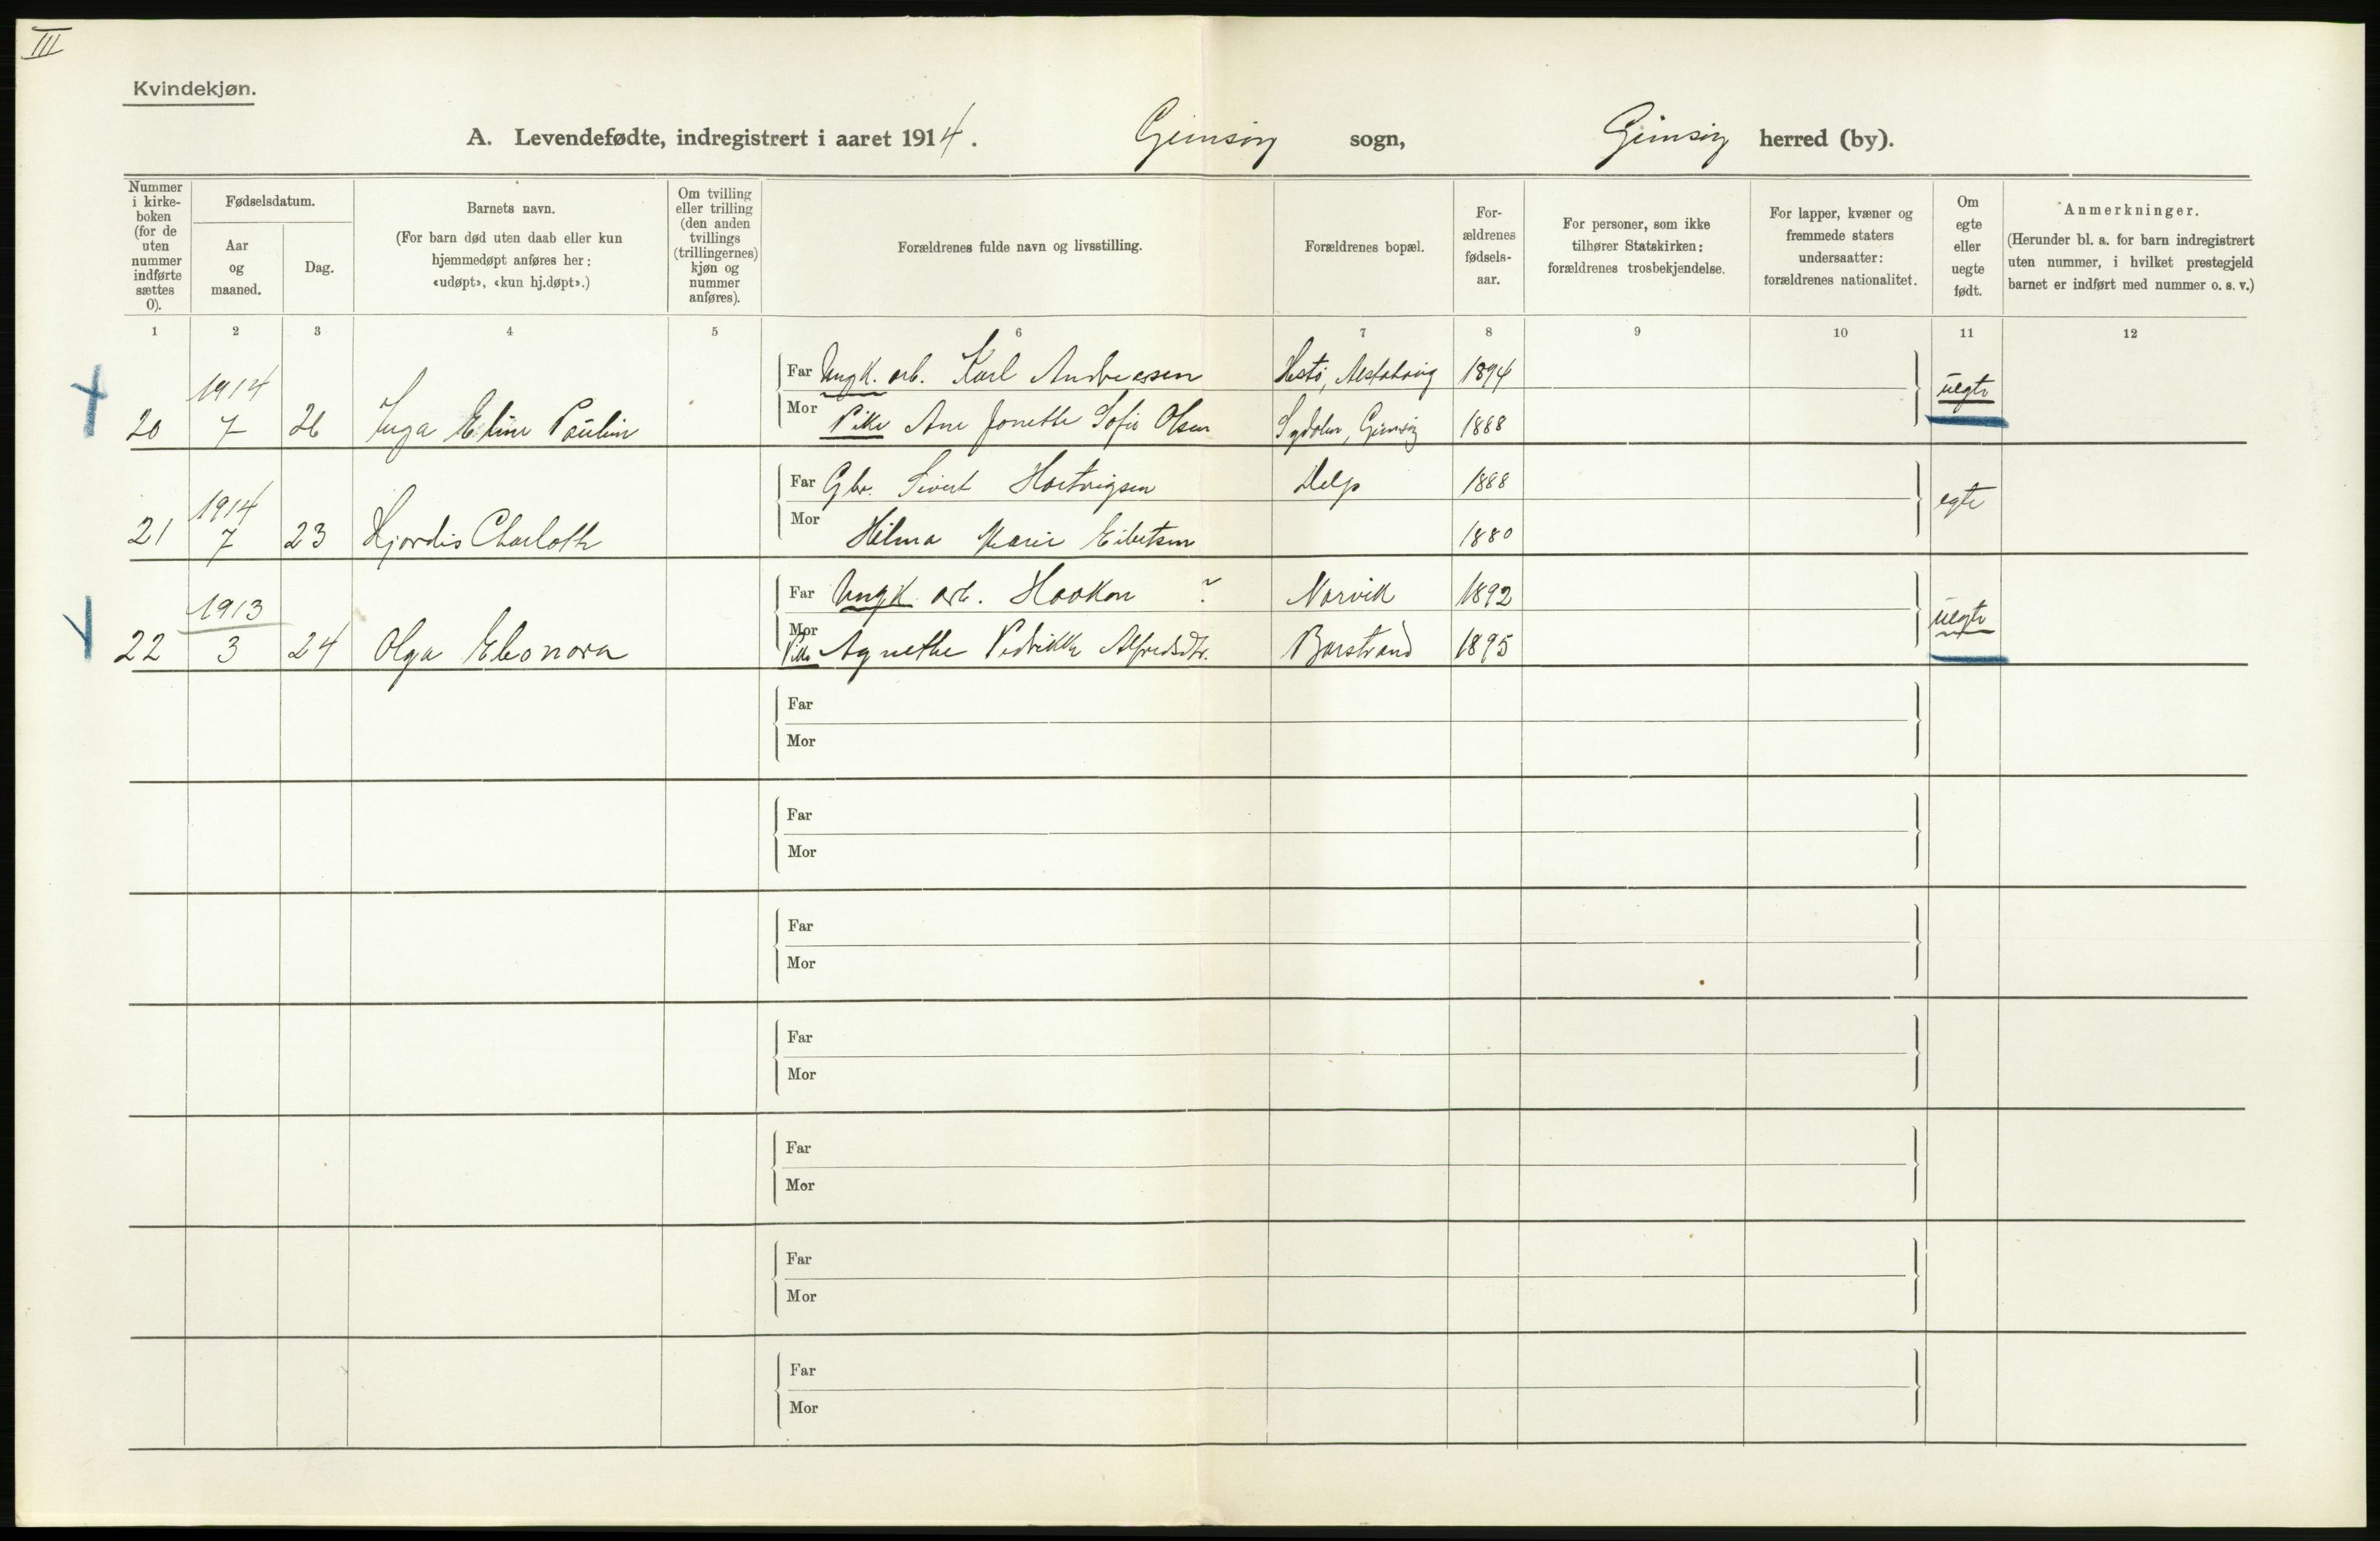 III
Kvindekjøn.
A. Levendefødte, indregistrert i aaret 1914. Gimsøy sogn, Gimsøy herred (by).
Nummer i kirke-boken (for de uten nummer indførte sættes 0).
Fødselsdatum.
Aar og maaned.
Dag.
Barnets navn.
(For barn død uten daab eller kun hjemmedøpt anføres her: «udøpt», «kun hj.døpt».)
Om tvilling eller trilling (den anden tvillings (trillingernes) kjøn og nummer anføres).
Forældrenes fulde navn og livsstilling.
Forældrenes bopæl.
For-ældrenes fødsels-aar.
For personer, som ikke tilhører Statskirken: forældrenes trosbekjendelse.
For lapper, kvæner og fremmede staters undersaatter: forældrenes nationalitet.
Om egte eller uegte født.
Anmerkninger.
(Herunder bl. a. for barn indregistrert uten nummer, i hvilket prestegjeld barnet er indført med nummer o. s. v.)
1 2 3 4 5 6 7 8 9 10 11 12
1914 Far Ungk. arb. Karl Andreassen Hestø, Alstahaug 1894 uegte
20 7 26 Inga Eline Paulin Mor Pike Ane Jonette Sofie Olsen Sydalen, Gimsøy 1888
1914 Far Gbr. Sivert Hartvigsen Delp 1888 egte
21 7 23 Hjordis Charloth Mor Hilma Marie Eibertsen 1880
1913 Far Ungk. arb. Haakon ? Narvik 1892 uegte
22 3 24 Olga Eleonora Mor Pike Agnethe Pedrikke Alfredsdtr. Barstrand 1895
Far
Mor
Far
Mor
Far
Mor
Far
Mor
Far
Mor
Far
Mor
Far
Mor